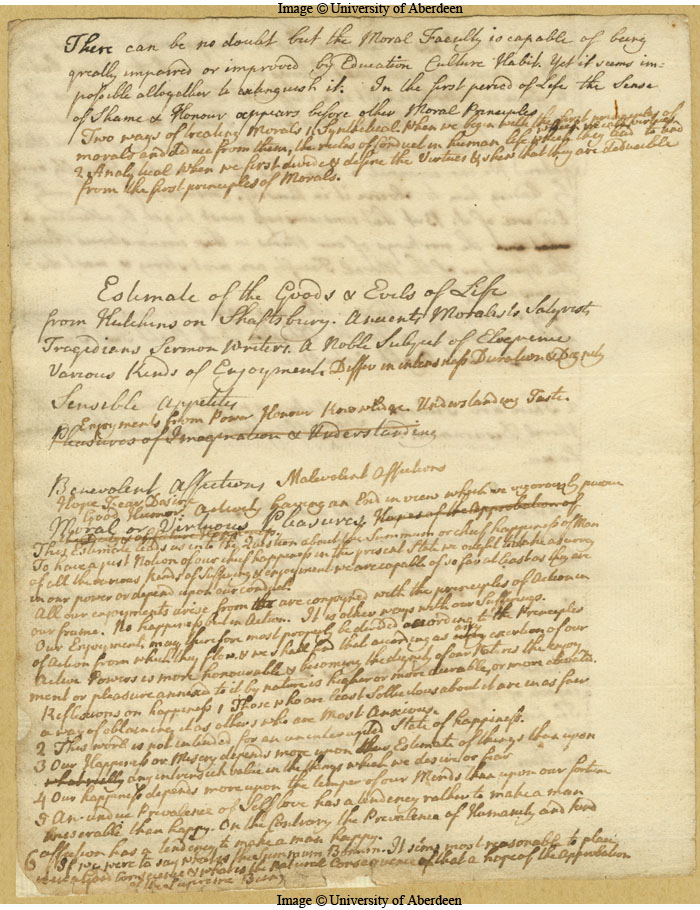 Image © University of Aberdeen
There can be no doubt but the Moral Faculty is capable of being
greatly impaired or improved by Education Culture Habit. Yet it seems im-
possible altogether to extinguish it. In the first period of Life the Sense
of Shame & Honour appears before other Moral Principles
Two ways of treating Morals 1 Synthetical when we begin with the first principles of
morals and deduce from them, the rules of Conduct in human life which they lead to and
2 Analytical when we first divide & define the Virtues & shew that they are deducible
from the first principles of Morals.
Estimate of the Goods & Evils of Life
from Hutchinson Shaftsbury. Ancient Moralists Satyrists
Tragedians Sermon Writers. A Noble Subject of Eloquence
Various Kinds of Enjoyment. Differ in intenseness Duration & Dignity
Sensible Appetites
Enjoyments from Power Honour Knowledge. Understanding Taste.
Pleasures of Imagination & Understanding
Benevolent Affections Malevolent Affections
Hope Fear Desire
Good Humor. Activity having an End in view which we vigorously pursue
Moral or Virtuous Pleasures Hopes of the Approbation of
This Estimate leads us into the Question about the Summum or chief happiness of Man
To have a just Notion of our chief happiness in the present State we ought to take a survey
of all the various Kinds of Suffering & enjoyment we are capable of so far at least as they are
in our power or depend upon our conduct.
All our enjoyments arise from the are conjoyned with the principles of Action in
our frame. No happiness but in Action. It is other ways with our Sufferings.
Our Enjoyments may therefore most properly be divided according to the Principles
of Action from which they flow. & we shall find that according as any exertion of our
Active Powers is more honourable & becoming the dignity of our Natures the enjoy
ment or pleasure annexed to it by nature is higher or more durable, or more elevate.
Reflexions on happiness 1 Those who are least sollicitous about it are in as fair
a way of obtaining it as others who are Most Anxious.
2 This world is not intended for an uninterrupted State of happiness.
3 Our Happiness or Misery depends more upon Our Estimate of things than upon
any intrinsick value in the things which we desire or fear
4 Our happiness depends more upon the temper of our Minds than upon our fortune
5 An undue Prevalence of Self love has a tendency rather to make a man
miserable than happy. On the Contrary the Prevalence of Humanity and kind
affection has a tendency to make a man happy.
6 If we were to say what is the summum Bonum. It seems most reasonable to place
it in a Good Conscience & what is the Natural Consequence of that a hope of the Approbation
of the Supreme Being
Image © University of Aberdeen